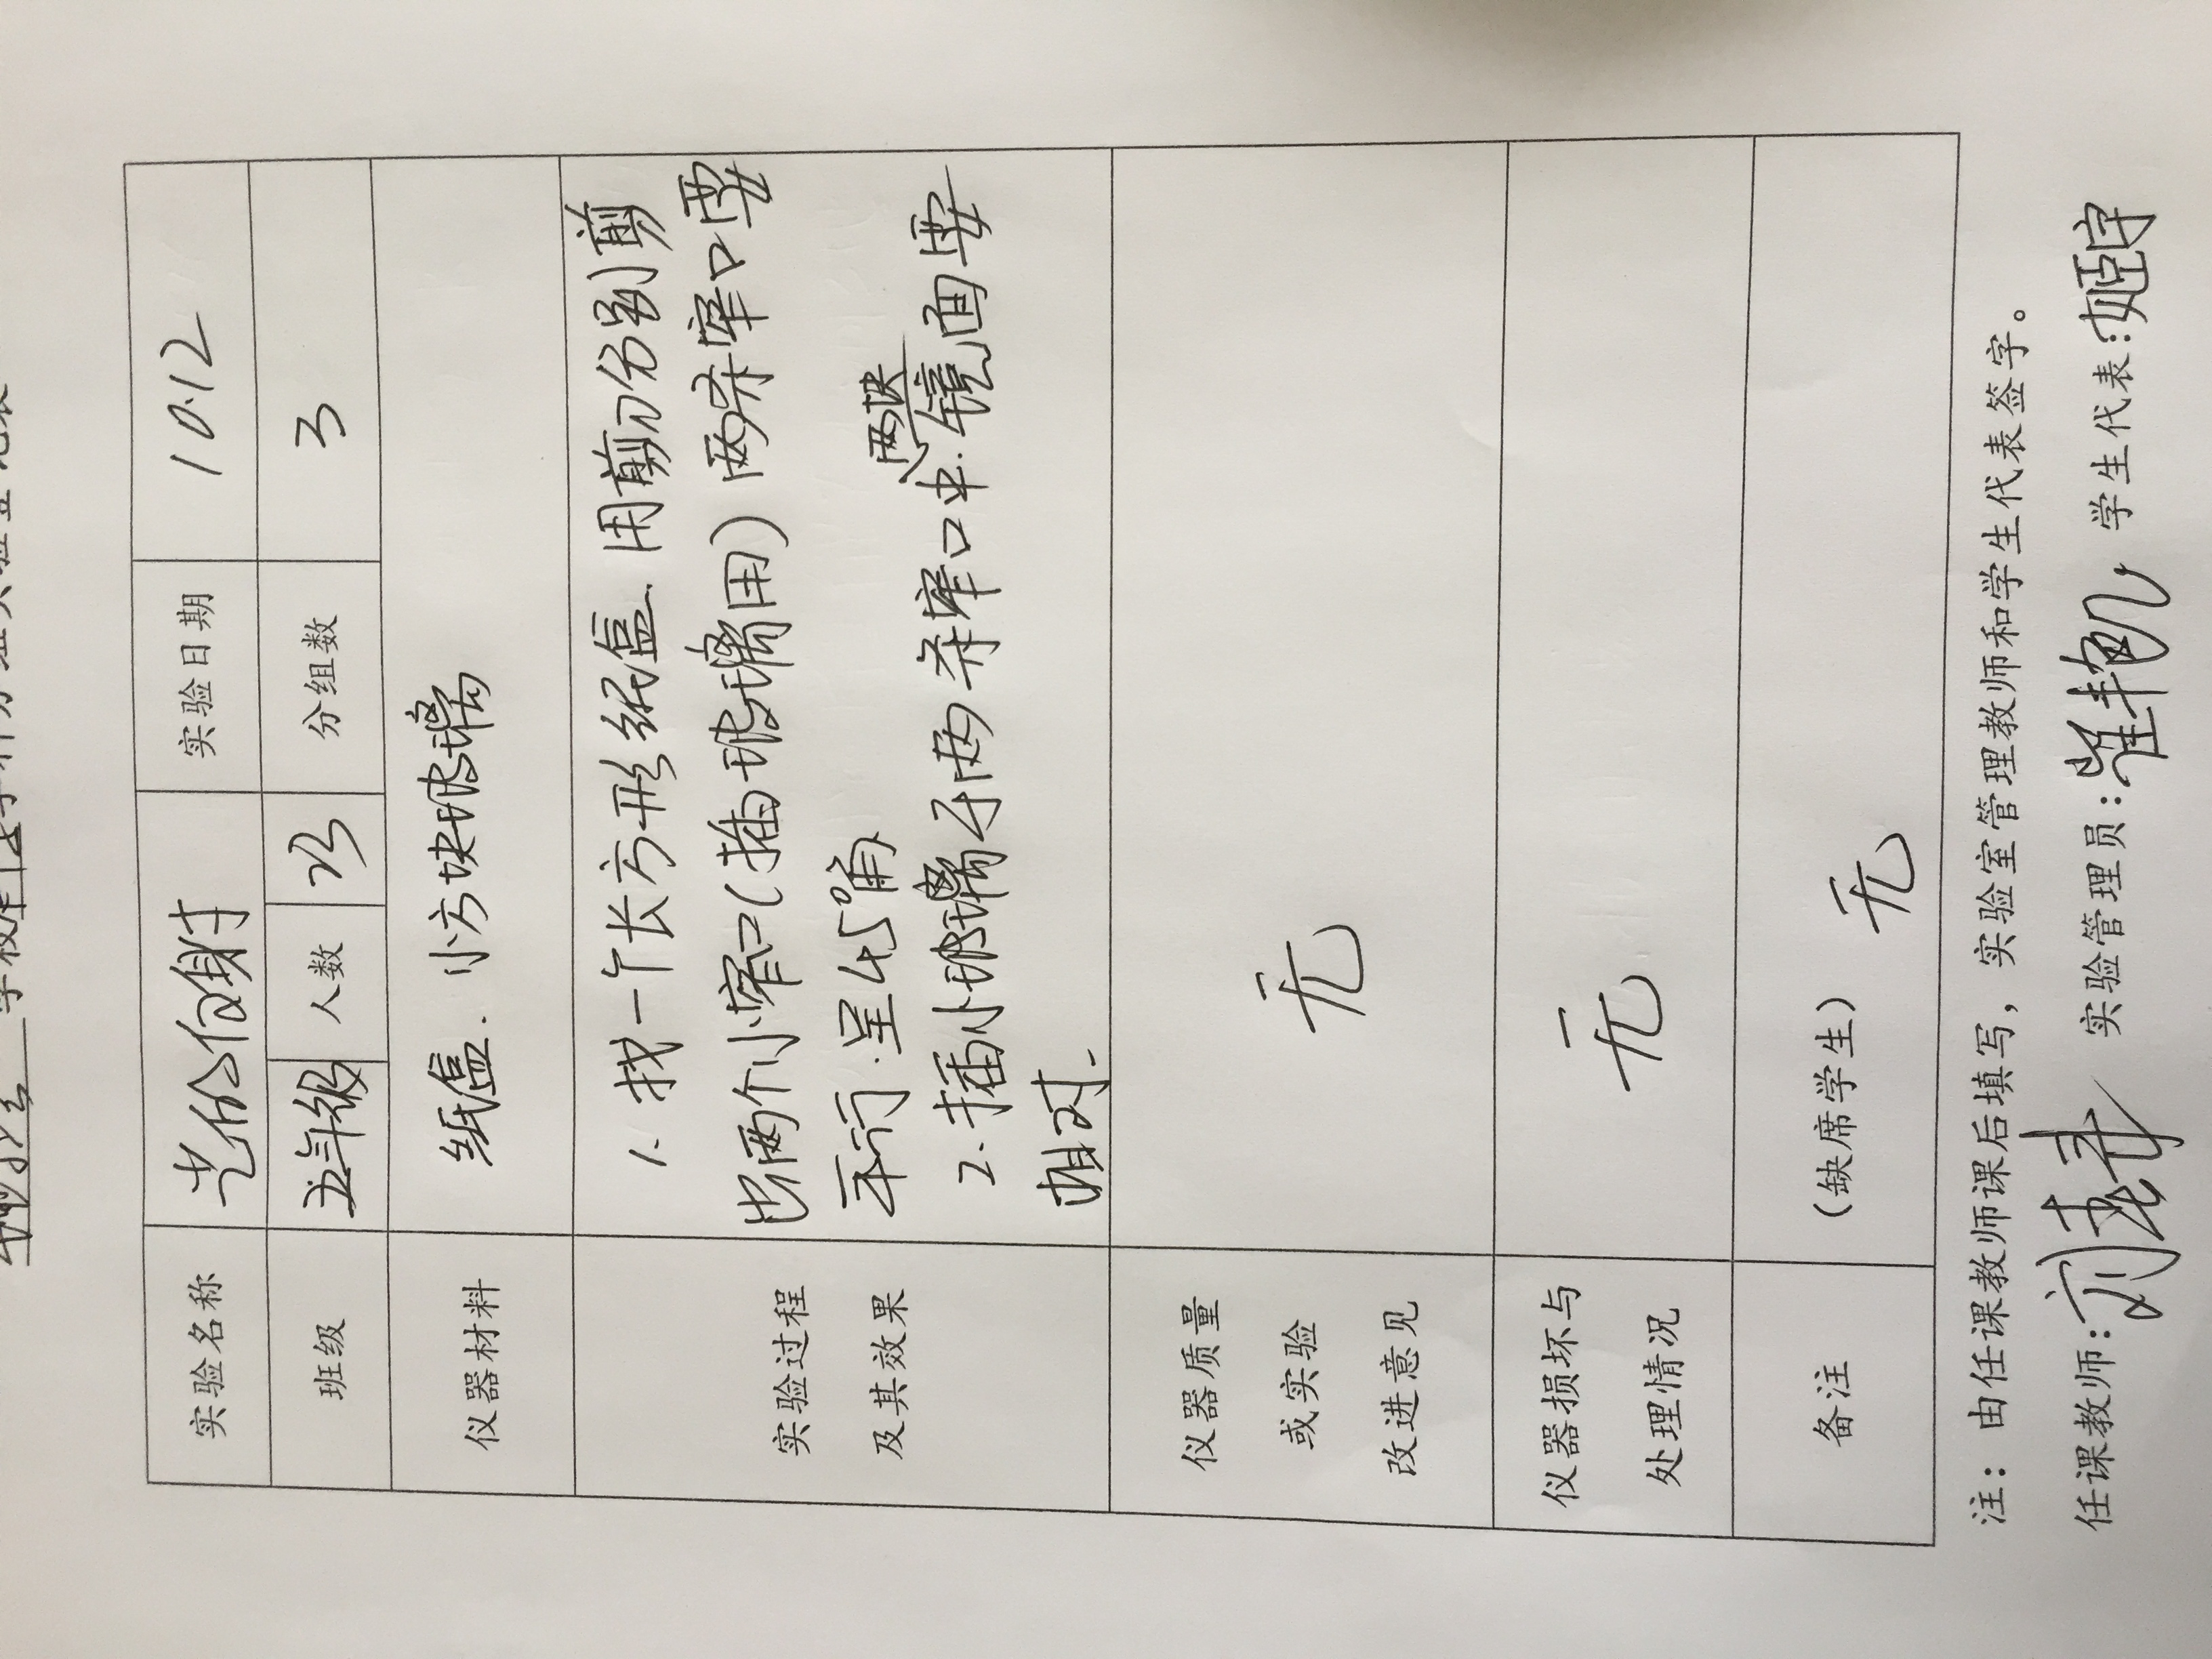 实验名称 光的反射 实验日期 10.12
班级 五年级 人数 13 分组数 3
仪器材料 纸盒. 小方块玻璃
实验过程
及其效果
1. 找一个长方形纸盒. 用剪刀分别剪
出两个小窄口(插玻璃用) 两条窄口要
平行.呈45°角
2.插小玻璃于两条窄口中.两块镜面要
相对.
仪器质量
或实验
改进意见
无
仪器损坏与
处理情况
无
备注 (缺席学生) 无
注：由任课教师课后填写，实验室管理教师和学生代表签字。
任课教师: 实验管理员: 崔艳 学生代表: